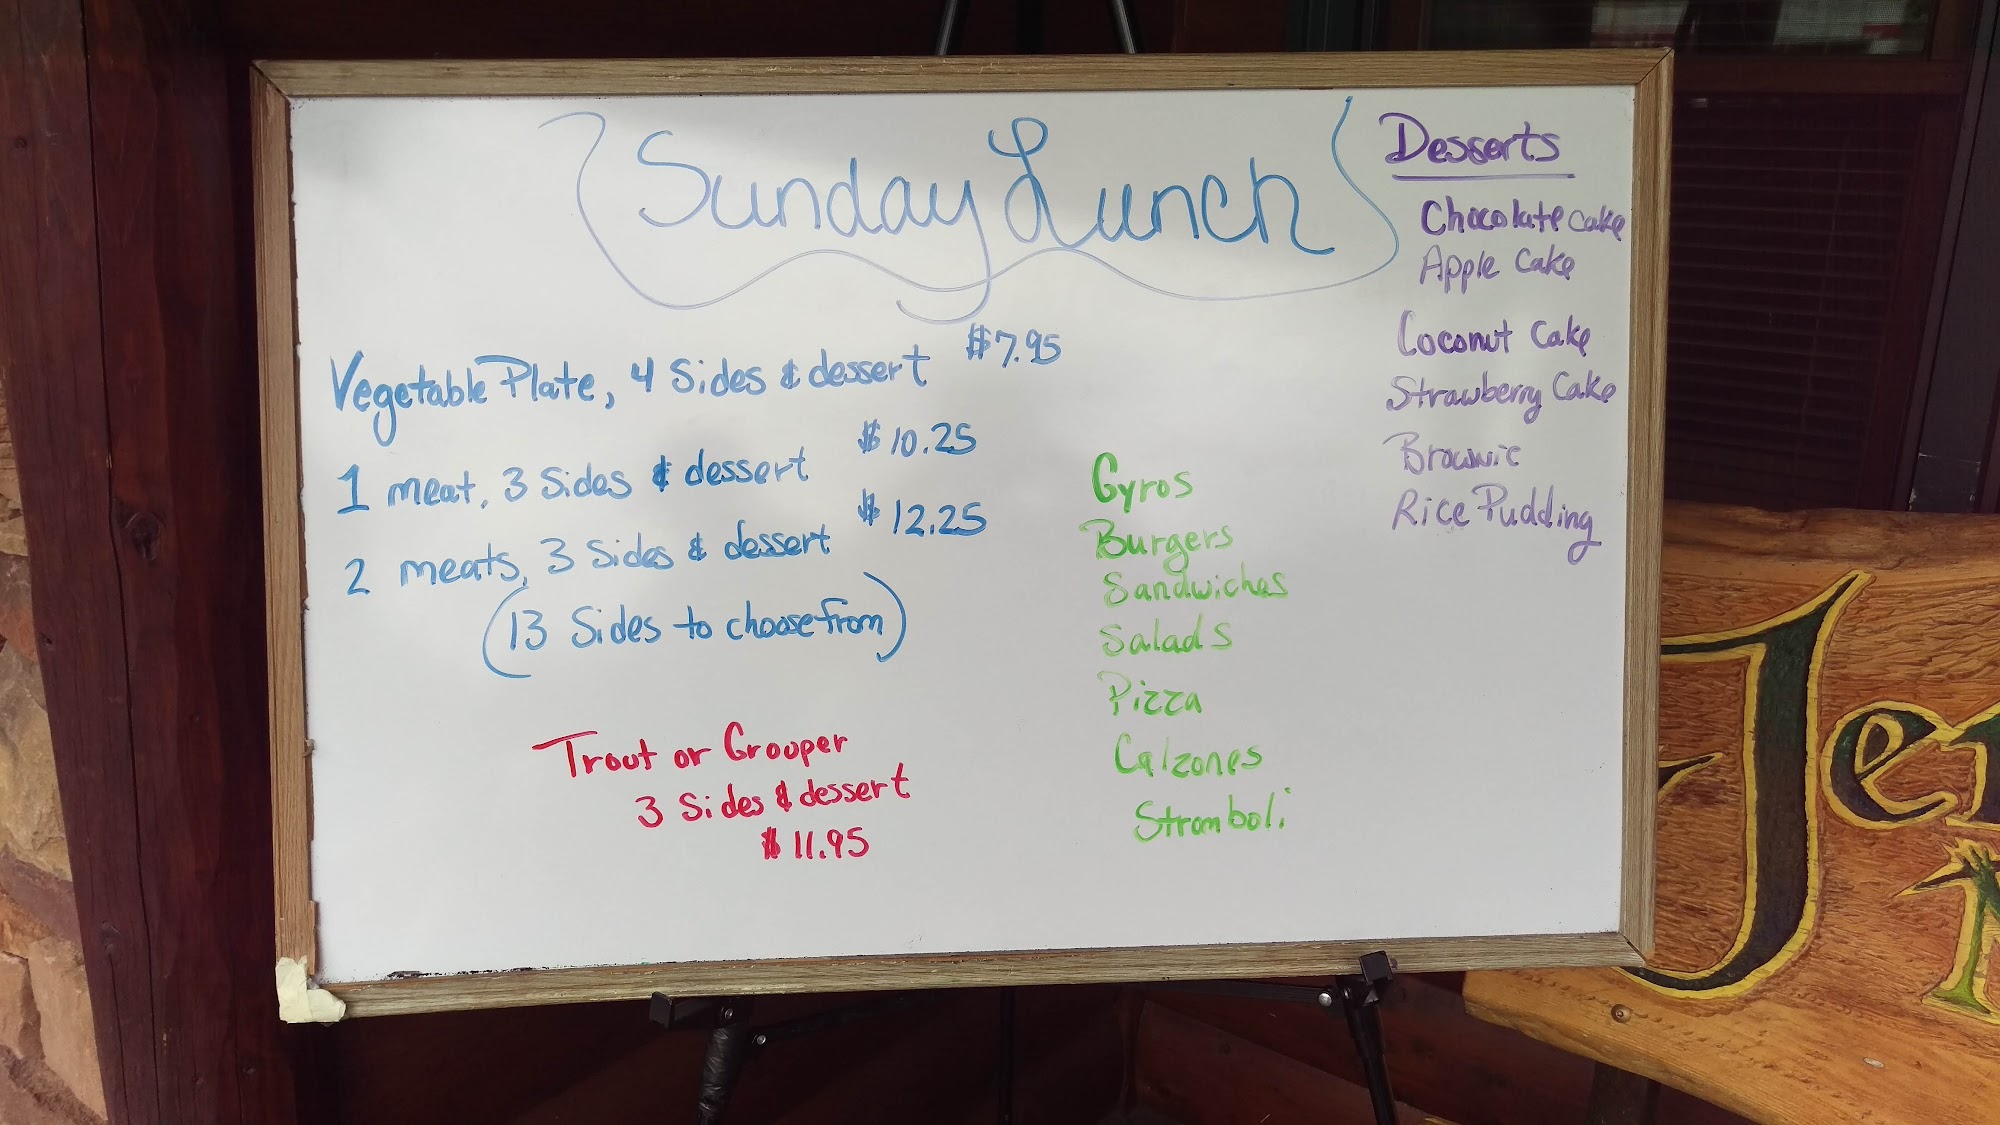 Sunday Lunch
Vegetable Plate, 4 Sides & dessert $7.95
1 meat, 3 Sides & dessert $10.25
2 meats, 3 Sides & dessert $12.25
(13 Sides to choose from)
Trout or Grouper
3 Sides & dessert
$11.95
Gyros
Burgers
Sandwiches
Salads
Pizza
Calzones
Stromboli
Desserts
Chocolate Cake
Apple Cake
Coconut Cake
Strawberry Cake
Brownie
Rice Pudding